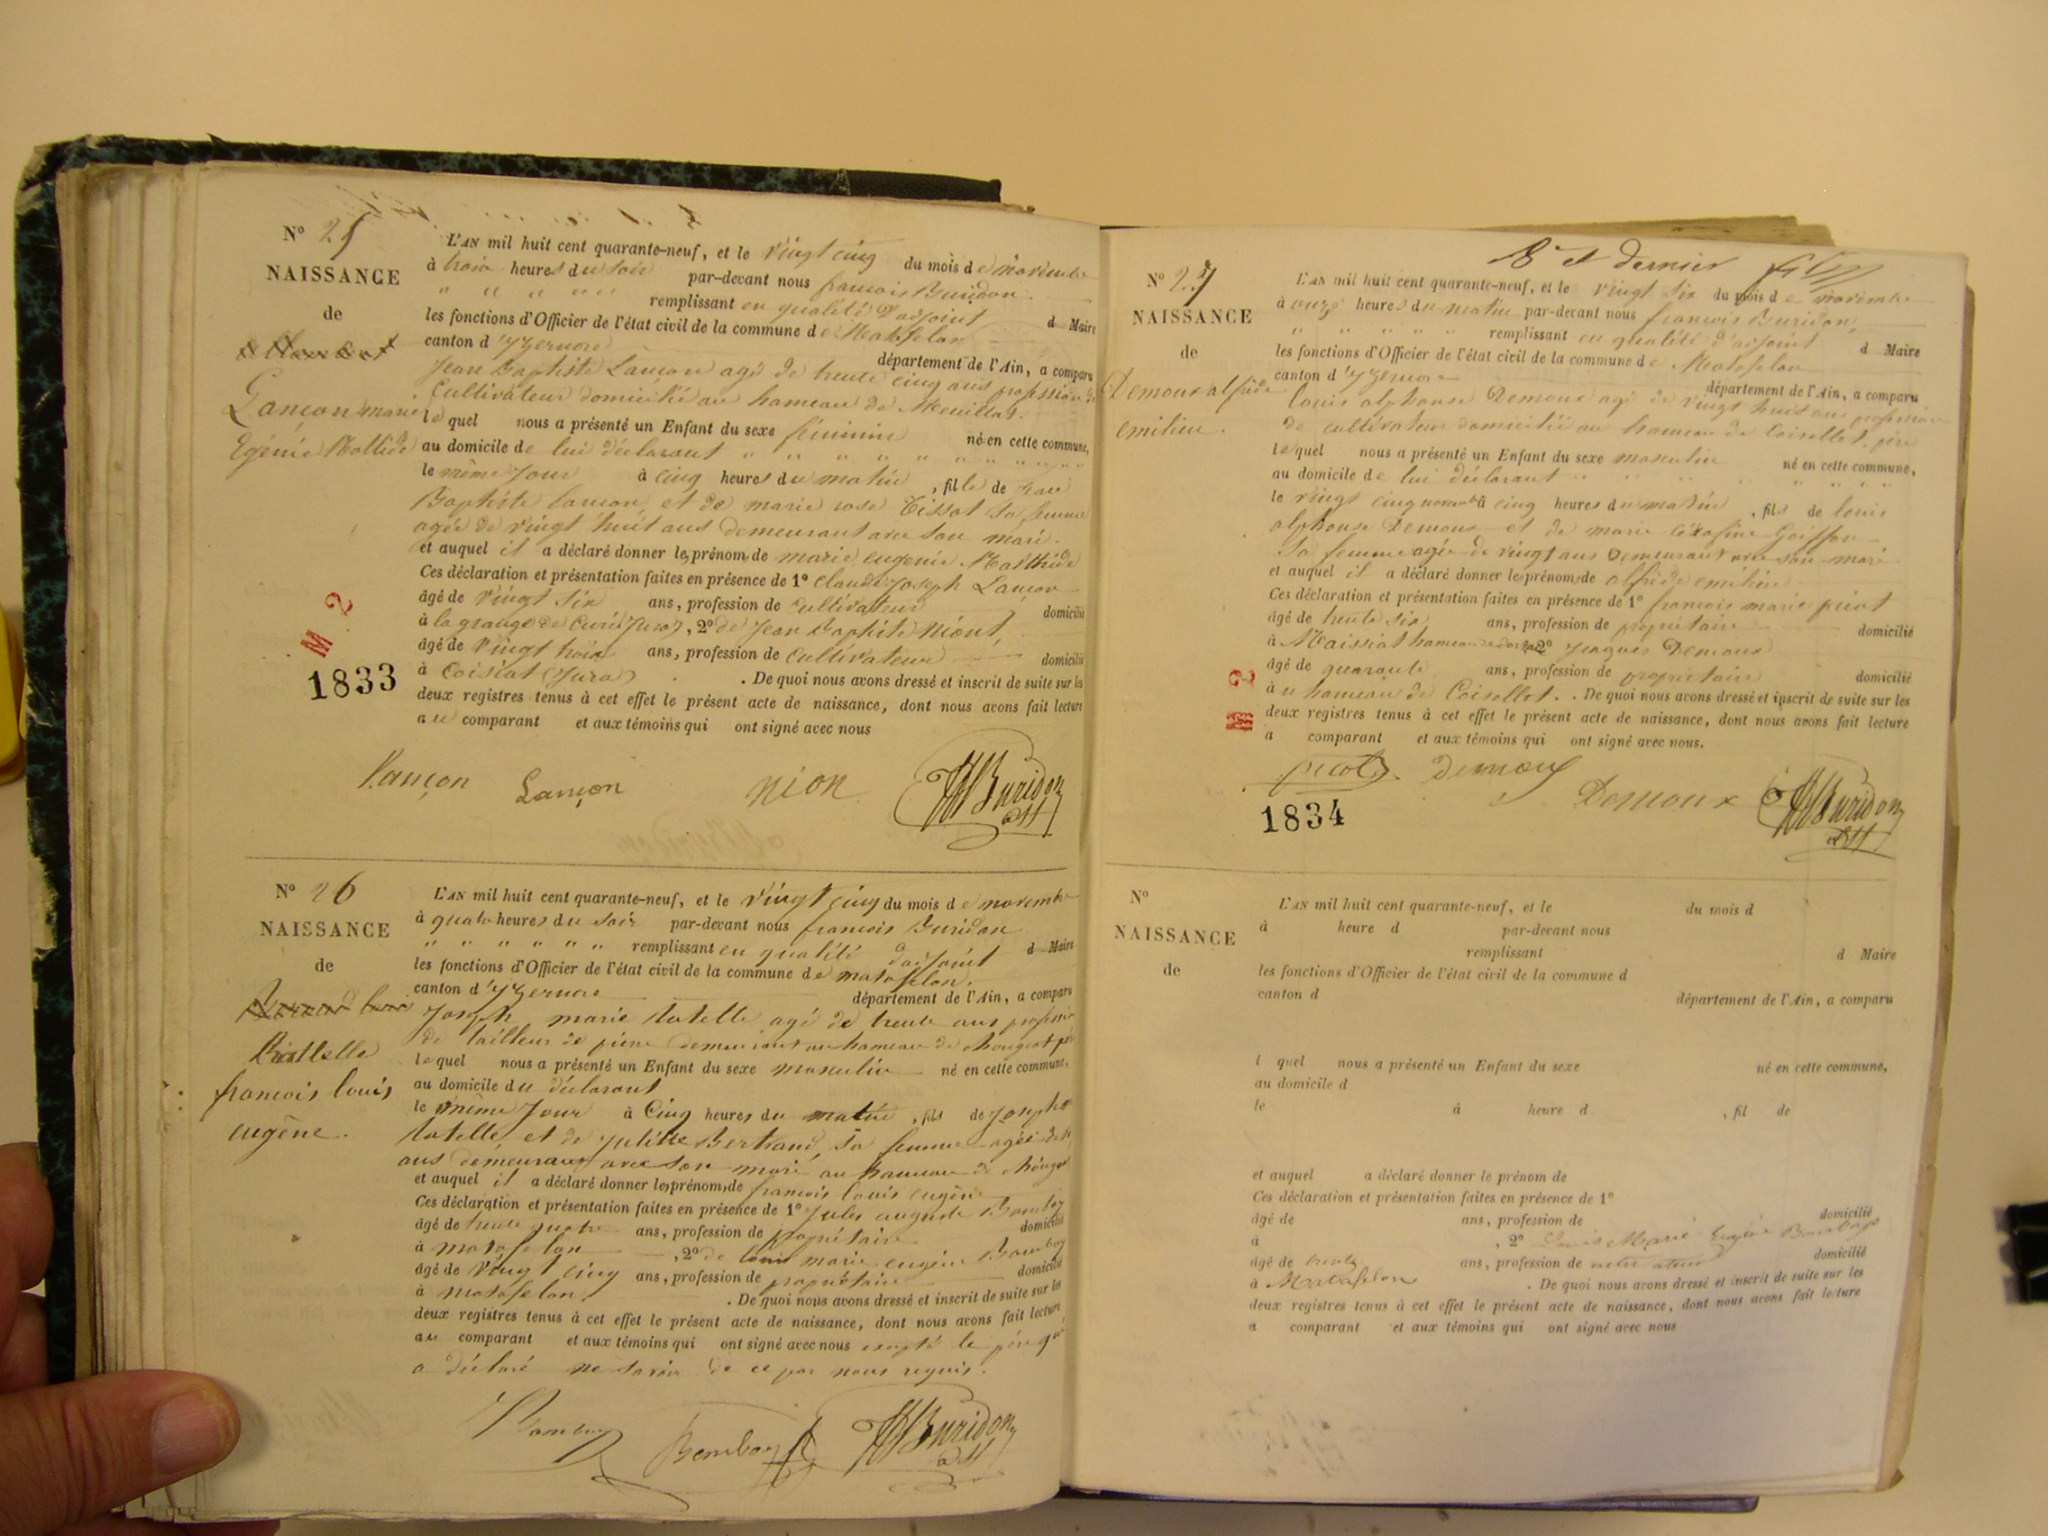 N° 25
NAISSANCE
de
Lançon marie
Egénie Mathilde
L'AN mil huit cent quarante-neuf, et le vingt cinq du mois de novembre
à trois heures du soir par-devant nous françois Buridon
" " " " " " remplissant en qualité d'adjoint d Maire
les fonctions d'Officier de l'état civil de la commune de Matafelon
canton d'yzernore département de l'Ain, a comparu
Jean Baptiste Lançon agé de trente cinq ans profession de
Cultivateur domicilié au hameau de
lequel nous a présenté un Enfant du sexe féminin né en cette commune,
au domicile de lui déclarant " " " " " " " " " "
le même Jour à cinq heures du matin, fille de Jean
Baptiste Lançon et de marie rose Tissot sa femme
agée de vingt huit ans demeurant avec son mari.
et auquel il a déclaré donner les prénoms de marie eugenie Mathilde
Ces déclaration et présentation faites en présence de 1° claude Joseph Lançon
âgé de vingt six ans, profession de cultivateur domicilié
à la grange de (Jura), 2° de Jean Baptiste Niont,
âgé de vingt trois ans, profession de cultivateur domicilié
à Coisiat (Jura) . De quoi nous avons dressé et inscrit de suite sur les
deux registres tenus à cet effet le présent acte de naissance, dont nous avons fait lecture
au comparant et aux témoins qui ont signé avec nous
M 2
1833
Lançon Lançon Nion Buridon
N° 26
NAISSANCE
de
françois louis
eugène.
L'AN mil huit cent quarante-neuf, et le vingt cinq du mois de novembre
à quatre heures du soir par-devant nous françois Buridon
" " " " " " remplissant en qualité d'adjoint d Maire
les fonctions d'Officier de l'état civil de la commune de matafelon,
canton d'yzernore département de l'Ain, a comparu
Joseph marie latelle agé de trente ans profession
de tailleur de pierre demeurant au hameau de chougeat père
lequel nous a présenté un Enfant du sexe masculin né en cette commune,
au domicile du déclarant
le même Jour à Cinq heures du matin, fils de Joseph
latelle et de Juliette Bertrand, sa femme agée de
ans demeurant avec son mari au hameau de chougeat
et auquel il a déclaré donner les prénoms de françois louis eugène
Ces déclaration et présentation faites en présence de 1° Jules auguste Bomboy
âgé de trente quatre ans, profession de propriétaire domicilié
à matafelan, 2° de louis marie eugène Bomboy
âgé de vingt cinq ans, profession de propriétaire domicilié
à matafelan . De quoi nous avons dressé et inscrit de suite sur les
deux registres tenus à cet effet le présent acte de naissance, dont nous avons fait lecture
au comparant et aux témoins qui ont signé avec nous excepté le père qui
a déclaré ne savoir de ce par nous requis.
Bomboy Bomboy Buridon
8e et dernier
N° 27
NAISSANCE
de
Demoux alfride
emilien.
L'AN mil huit cent quarante-neuf, et le vingt six du mois de novembre
à onze heures du matin par-devant nous françois Buridon,
" " " " " " remplissant en qualité d'adjoint d Maire
les fonctions d'Officier de l'état civil de la commune de Matafelon
canton d'yzernore département de l'Ain, a comparu
louis alphonse Demoux agé de vingt huit ans profession
de cultivateur domicilié au hameau de Coisellet, père
lequel nous a présenté un Enfant du sexe masculin né en cette commune,
au domicile de lui déclarant " " " " " "
le vingt cinq novembre à cinq heures du matin, fils de louis
alphonse Demoux et de marie Goiffon
Sa femme agée de vingt ans demeurant avec son mari
et auquel il a déclaré donner les prénoms de alfride emilien
Ces déclaration et présentation faites en présence de 1° françois marie picot
âgé de trente six ans, profession de propriétaire domicilié
à Maissiat hameau 2° Jacques Demoux
âgé de quarante ans, profession de propriétaire domicilié
à u hameau de Coisellet. . De quoi nous avons dressé et inscrit de suite sur les
deux registres tenus à cet effet le présent acte de naissance, dont nous avons fait lecture
a comparant et aux témoins qui ont signé avec nous.
M 2
picot Demoux Demoux Buridon
1834
N°
NAISSANCE
de
L'AN mil huit cent quarante-neuf, et le du mois d
à heure d par-devant nous
remplissant d Maire
les fonctions d'Officier de l'état civil de la commune d
canton d département de l'Ain, a comparu
l quel nous a présenté un Enfant du sexe né en cette commune,
au domicile d
le à heure d , fil de
et auquel a déclaré donner le prénom de
Ces déclaration et présentation faites en présence de 1°
âgé de ans, profession de domicilié
à , 2° Louis Marie Eugène Bomboy
âgé de trente ans, profession de domicilié
à Matafelon . De quoi nous avons dressé et inscrit de suite sur les
deux registres tenus à cet effet le présent acte de naissance, dont nous avons fait lecture
a comparant et aux témoins qui ont signé avec nous